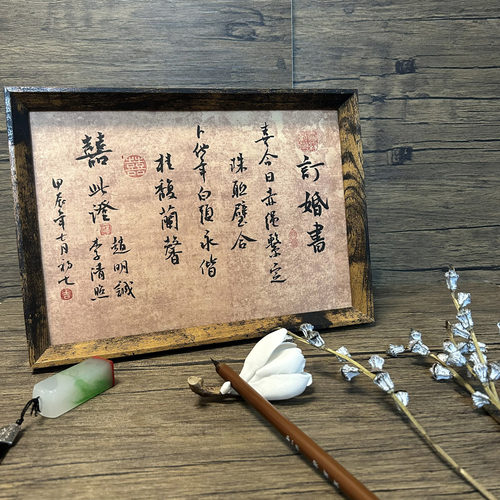 訂婚書
喜今日赤繩繫定
珠聯璧合
卜他年白頭永偕
桂馥蘭馨
囍
囍
此證
趙明誠
李清照
甲辰年七月初七